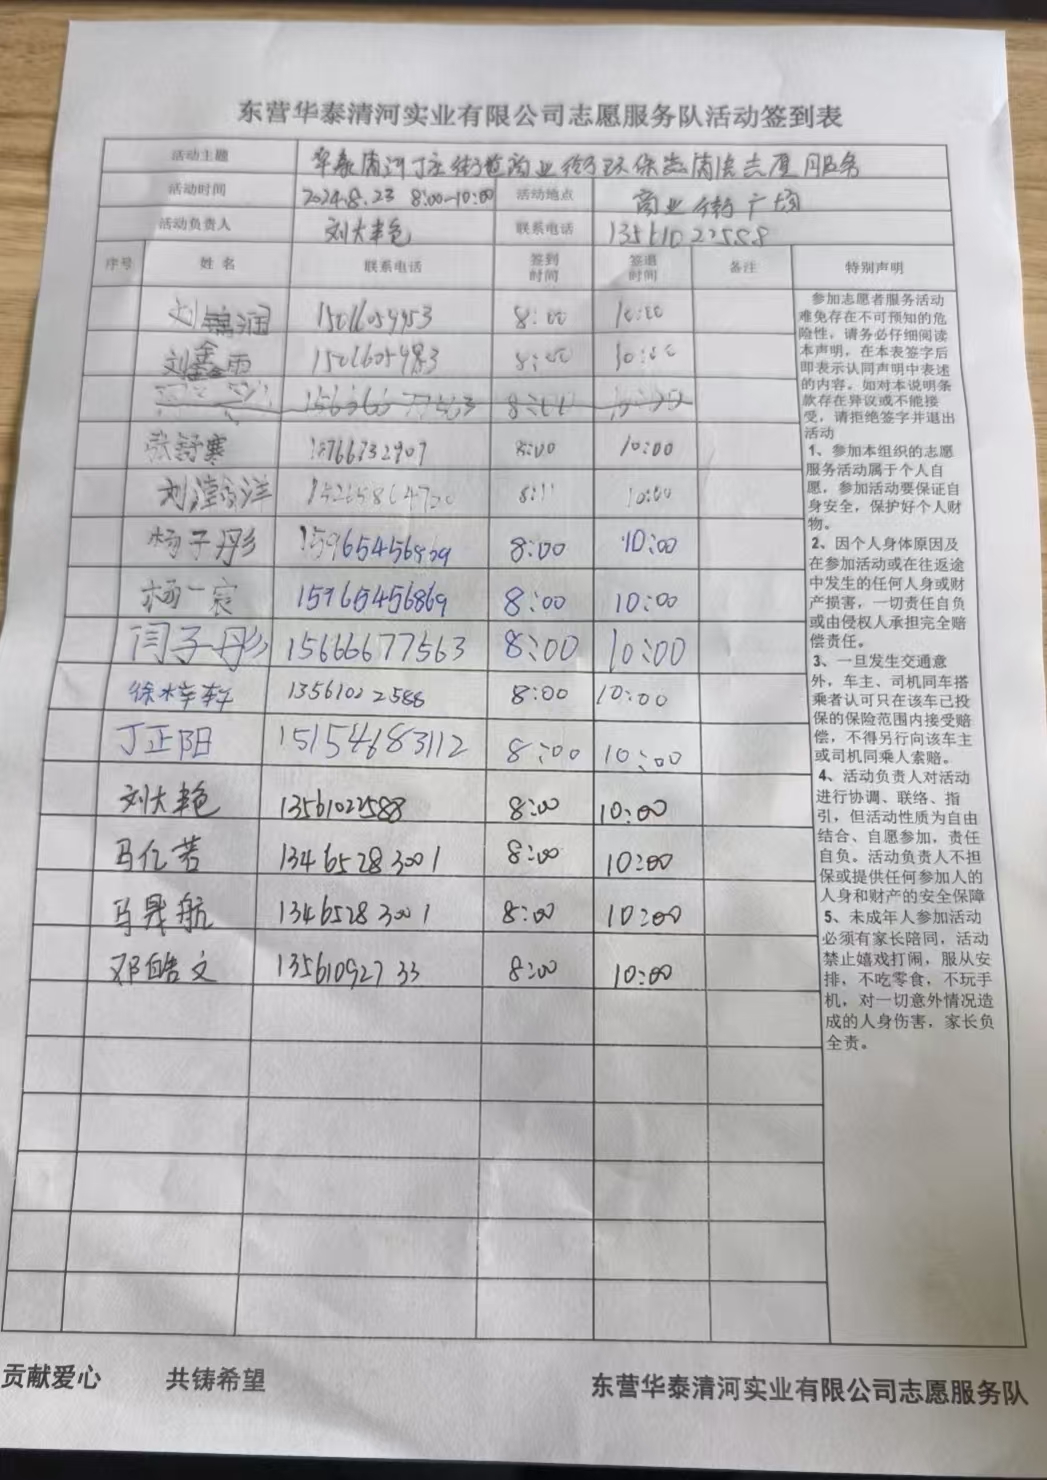 东营华泰清河实业有限公司志愿服务队活动签到表
活动主题 华泰清河丁庄街道商业街环保志愿服务
活动时间 2024.8.23 8:00-10:00 活动地点 商业街广场
活动负责人 刘大艳 联系电话 13561022588
序号 姓名 联系电话 签到时间 签退时间 备注 特别声明
刘锦润 15016054953 8:00 10:00
刘鑫雨 15016054983 8:00 10:00
15666677563 8:00
张舒寒 18766732907 8:00 10:00
10:00
杨子彤 15965456869 8:00 10:00
杨一宸 15965456869 8:00 10:00
闫子彤 15666677563 8:00 10:00
徐梓轩 13561022588 8:00 10:00
丁正阳 15154683112 8:00 10:00
刘大艳 13561022588 8:00 10:00
马亿茗 13465283001 8:00 10:00
马晟航 13465283001 8:00 10:00
邓皓文 13561092733 8:00 10:00
参加志愿者服务活动
难免存在不可预知的危
险性，请务必仔细阅读
本声明，在本表签字后
即表示认同声明中表述
的内容。如对本说明条
款存在异议或不能接
受，请拒绝签字并退出
活动
1、参加本组织的志愿
服务活动属于个人自
愿，参加活动要保证自
身安全，保护好个人财
物。
2、因个人身体原因及
在参加活动或在往返途
中发生的任何人身或财
产损害，一切责任自负
或由侵权人承担完全赔
偿责任。
3、一旦发生交通意
外，车主、司机同车搭
乘者认可只在该车已投
保的保险范围内接受赔
偿，不得另行向该车主
或司机同乘人索赔。
4、活动负责人对活动
进行协调、联络、指
引，但活动性质为自由
结合、自愿参加，责任
自负。活动负责人不担
保或提供任何参加人的
人身和财产的安全保障
5、未成年人参加活动
必须有家长陪同，活动
禁止嬉戏打闹，服从安
排，不吃零食，不玩手
机，对一切意外情况造
成的人身伤害，家长负
全责。
贡献爱心 共铸希望 东营华泰清河实业有限公司志愿服务队